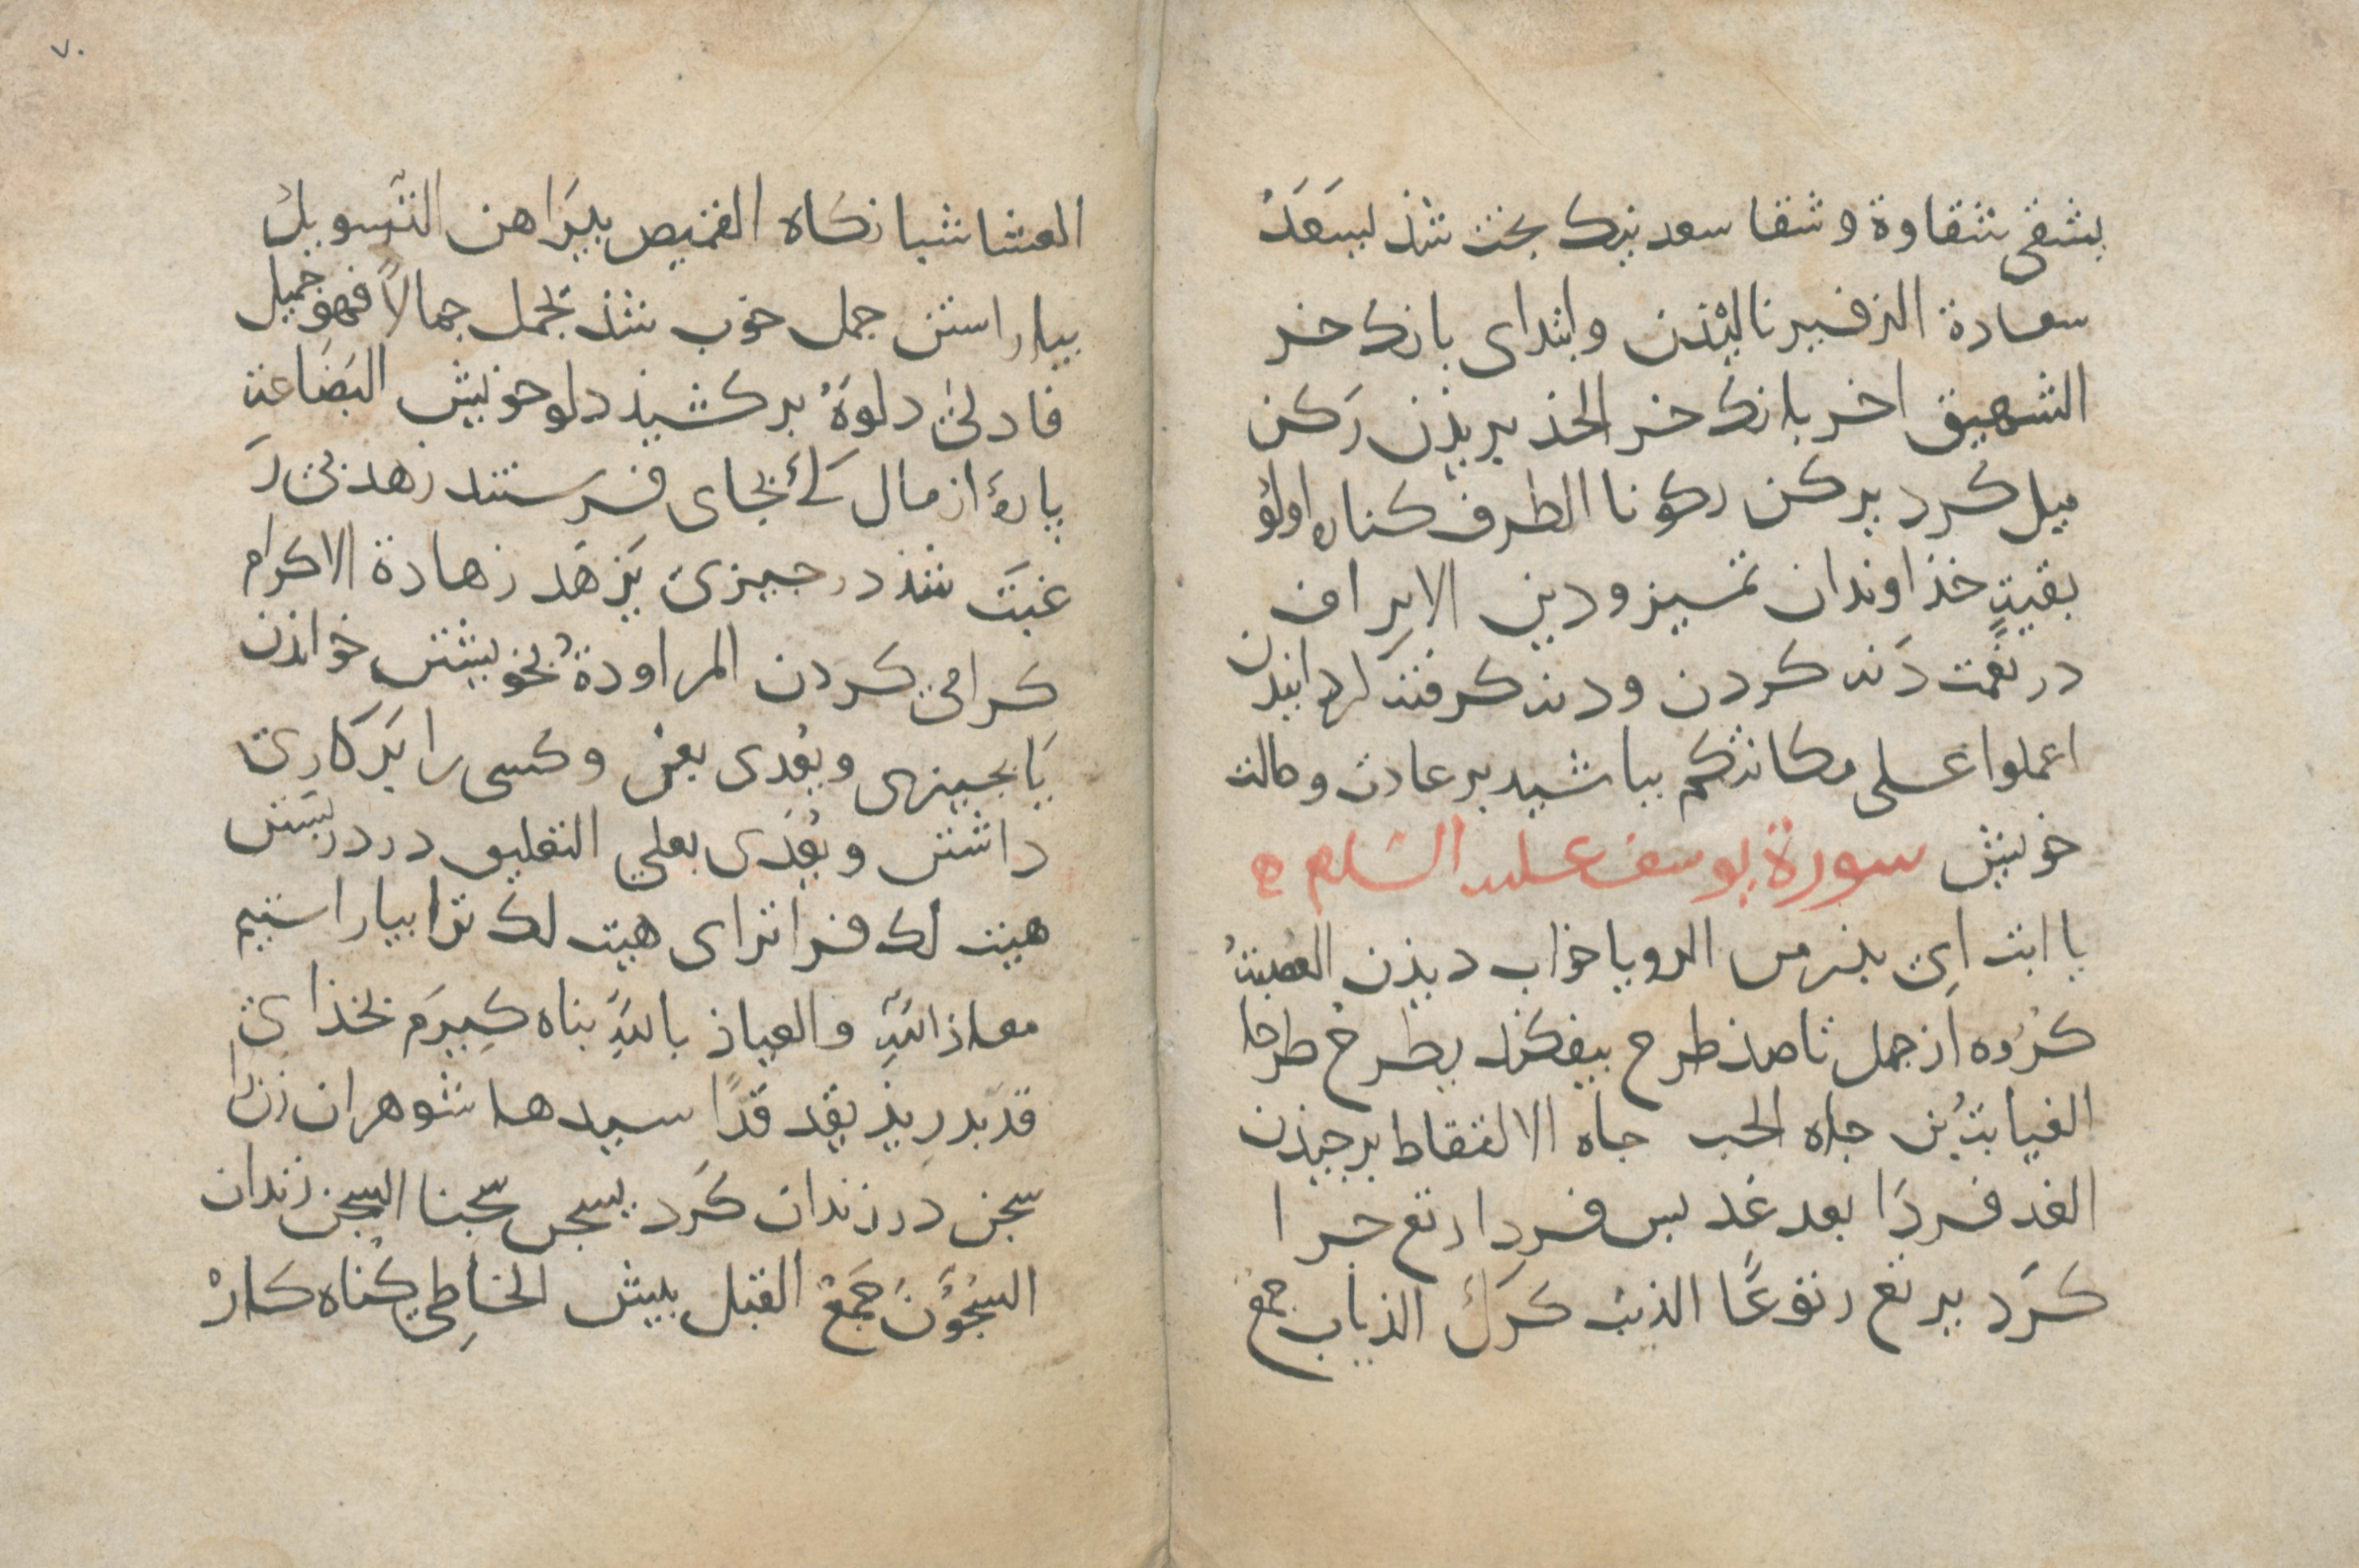 يشقى شقاوة و شقا سعد نيك بخت شذ يسعَدُ
سعادة الزفير ناليذن وابتداى بانك خر
الشهيق اخر بانك خر الحذ بريذن ركن
ميل كرد يركن ركونا الطرف كناره اولو
بقيةٍ خذاوندان تمييز ودين الاتراف
در نعمت دَنه كردن ودنه كرفتنَ كردانيدن
اعملوا على مكانتكم بباشيد بر عادت وحالت
خويش سورة يوسف عليه السلم ه
يا ابت اى بذر من الرويا خواب ديذن العصبةُ
كرُوه از جهل تا صذ طرح بيفكند يطرحُ طرحا
الغيابة بُن جاه الجب جاه الالتقاط برجيذن
الغد فردَا بعد غد بس فردا رتع جرا
كَرد يرتع رتوعًا الذيب كرك الذياب جمع
٧٠
العشا شبانكاه القميص بيَراهن التَسويل
بياراستن جمل خوب شذ يجمل جمالاً فهو جميل
فادلى دلوَهُ بركشيذ دلو خويش البَضاعة
پارهٔ از مال كه بجاى فرستند زهد بى رَ
غبتَ شذ در جيزى يَزهَد زهادة الاكرام
كرامى كردن المراودةُ بخويشتن خواندن
يَا بجيزى ويعُدى بعن و كسى را بَر كارى
داشتن و يُعَدى بعلى التغليق در دربستن
هيت لك فرا تراى هيت لك ترا بياراستيم
معاذ اللهِ والعياذ باللهِ بناه كيرَم بخذاى
قد بدريذ يقد قدًا سيدها شوهر ان زن را
سجن در زندان كَرد يسجن سجنا السجن زندان
السُجوُنَ جَمعُ القبل بيش الخاطِى كناه كارْ